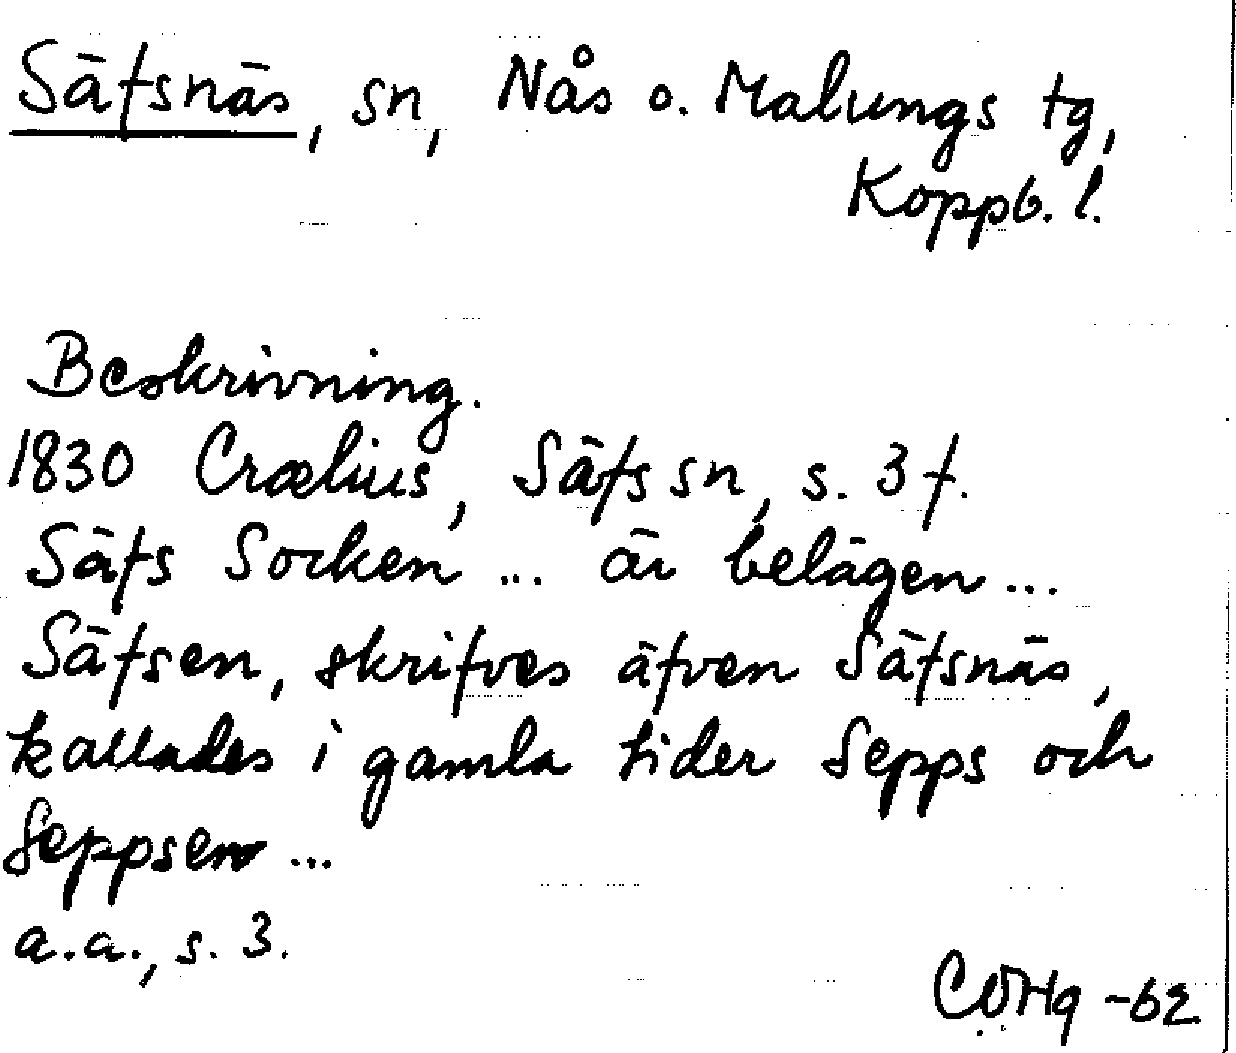 Säfsnäs, sn, Nås o. Malungs tg,
Koppb. l.
Beskrivning.
1830 Crælius, Säfs sn, s. 3 f.
Säfs Socken ... är belägen ...
Säfsen, skrifves äfven Säfsnäs,
kallades i gamla tider Sepps och
Seppsen ...
a.a., s. 3.
-62